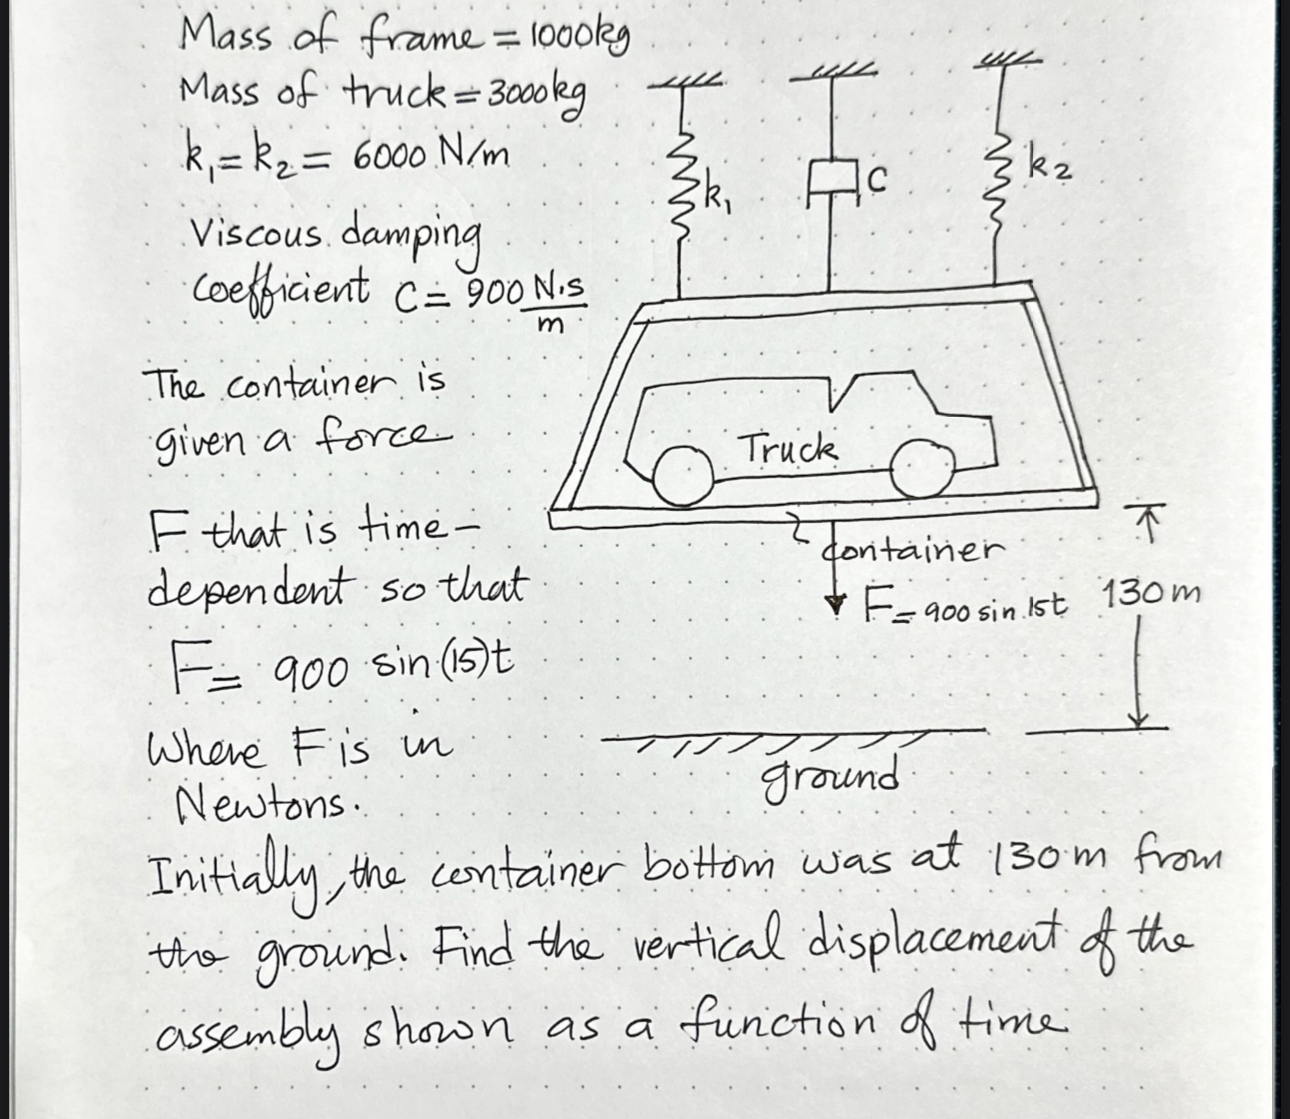 Mass of frame = 1000kg
Mass of truck = 3000kg
k₁ = k₂ = 6000 N/m
Viscous damping
coefficient C = 900 N.s/m
k₁
C
k₂
The container is
given a force
Truck
F that is time-
dependent so that
container
F = 900 sin 15t
130 m
F = 900 sin (15)t
Where F is in
Newtons.
ground
Initially, the container bottom was at 130 m from
the ground. Find the vertical displacement of the
assembly shown as a function of time